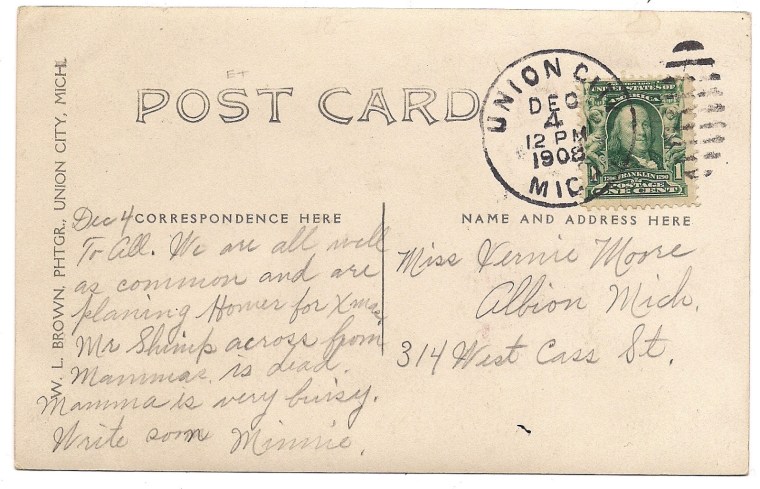 POST CARD
UNION CITY
DEC
4
12 PM
1908
MICH
UNITED STATES OF
AMERICA
FRANKLIN
POSTAGE
1
ONE CENT
W. L. BROWN, PHTGR., UNION CITY, MICH.
CORRESPONDENCE HERE
Dec 4
To All. We are all well
as common and are
planing Homer for Xmas,
Mr Shimp across from
Mammas is dead.
Mamma is very buisy.
Write soon Minnie.
NAME AND ADDRESS HERE
Miss Vernie Moore
Albion Mich.
314 West Cass St.